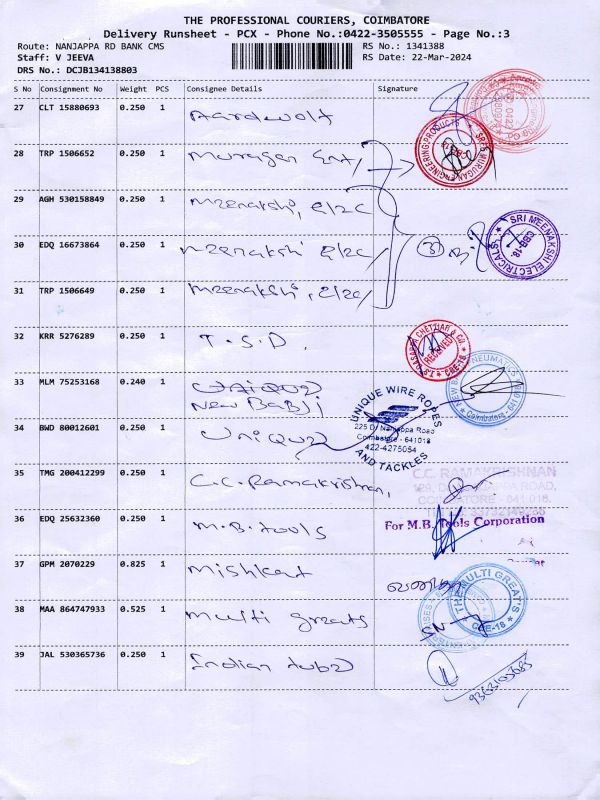 THE PROFESSIONAL COURIERS, COIMBATORE
Delivery Runsheet - PCX - Phone No.:0422-3505555 - Page No.:3
Route: NANJAPPA RD BANK CMS
RS No.: 1341388
Staff: V JEEVA
RS Date: 22-Mar-2024
DRS No.: DCJB134138803
S No Consignment No Weight PCS Consignee Details Signature
27 CLT 15880693 0.250 1 Aardwolt
28 TRP 1506652 0.250 1 Murugan Ent/
SRI MURUGAN ENGINEERING PRODUCTS
29 AGH 530158849 0.250 1 Meenakshi, e/2c
30 EDQ 16673864 0.250 1 Meenakshi e/2c/
SRI MEENAKSHI ELECTRICALS
CBE-18.
31 TRP 1506649 0.250 1 Meenakshi, e/2c/
32 KRR 5276289 0.250 1 T.S.D.
RECEIVED
CBE-18
33 MLM 75253168 0.240 1
New Babji
PNEUMATICS
Coimbatore - 641018
34 BWD 80012601 0.250 1 Unique
UNIQUE WIRE ROPES
225 D, Nanjappa Road
Coimbatore - 641018
422-4275054
AND TACKLES
35 TMG 200412299 0.250 1 C.C. Ramakrishnan,
C.C. RAMAKRISHNAN
36 EDQ 25632360 0.250 1 M.B. tools
For M.B. Tools Corporation
37 GPM 2070229 0.825 1 Mishkat
38 MAA 864747933 0.525 1 Multi greats
THE MULTI GREAT'S
CBE-18
39 JAL 530365736 0.250 1 Indian tube